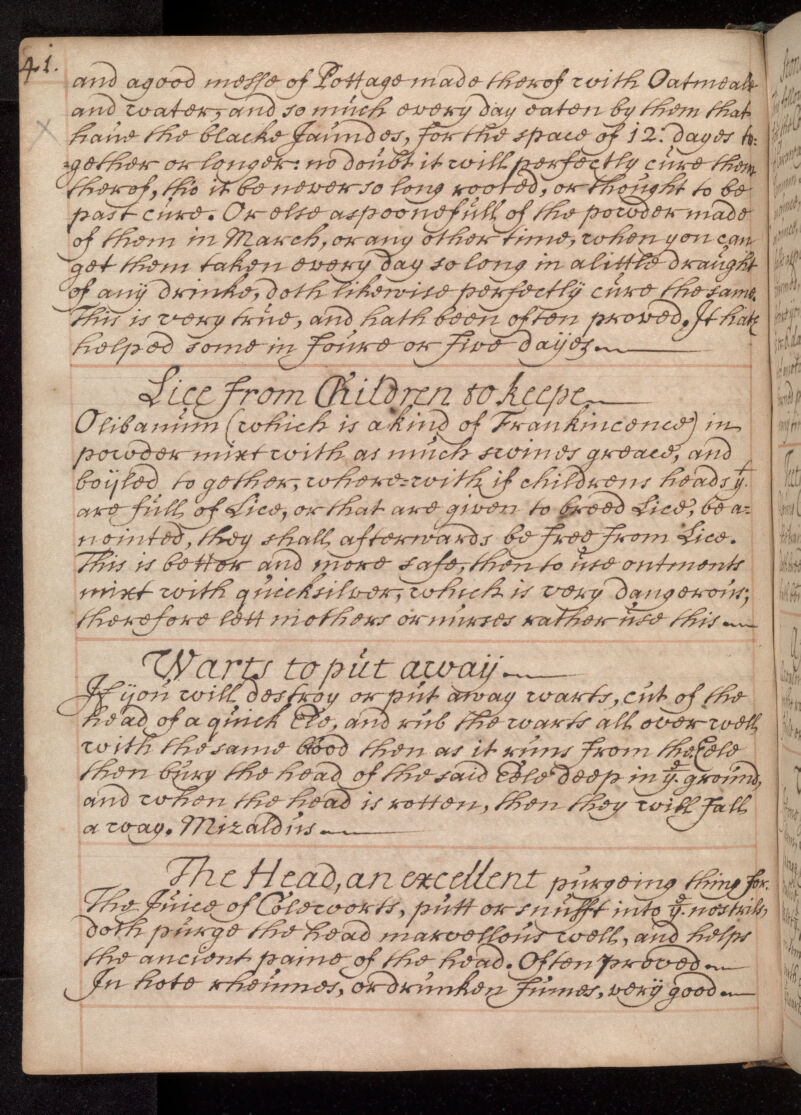 41.
and a good messe of Pottage made therof with Oatmeale
and water, and so much every day eaten by them that
haue the blacke Jaundes, for the space of 12: dayes to:
:gether or longer: no doubt it will perfectly cure them
therof, tho it be never so long rooted, or thought to be
past cure. Or else a spoonefull of the powder made
of them in March, or any other time, when you can
get them taken every day so long in a little draught
of any drinke, doth likewise perfectly cure the same.
This is very true, and hath been often proved. It hath
helped some in Foure or Five dayes.
Lice from Children to keepe
Olibanum (which is a kind of Frankincence) in
powder mixt with as much swines greace, and
boyled together, where=with if childrens heads yt
are full of Lice, or that are given to breed Lice, be a=
nointed, they shall afterwards be free from Lice.
This is better and more safe, then to use ontments
mixt with quicksilver, which is very dangerous;
therefore lett mothers or nurses rather use this
Warts to put away
If you will destroy or put away warts, cut of the
head of a quick Ele, and rub the warts all over well
with the same blood then as it runs from the Eele
then bury the head of the said Eele deep in ye ground,
and when the head is rotten, then they will fall
away. Mizaldus
The Head, an excellent purgeing thing for.
The Juice of Coleworts, putt or snufft into ye nostrils,
doth purge the head marvellous well, and helps
the ancient paine of the head. Often proved
In hote rheumes, or drunken fumes, very good